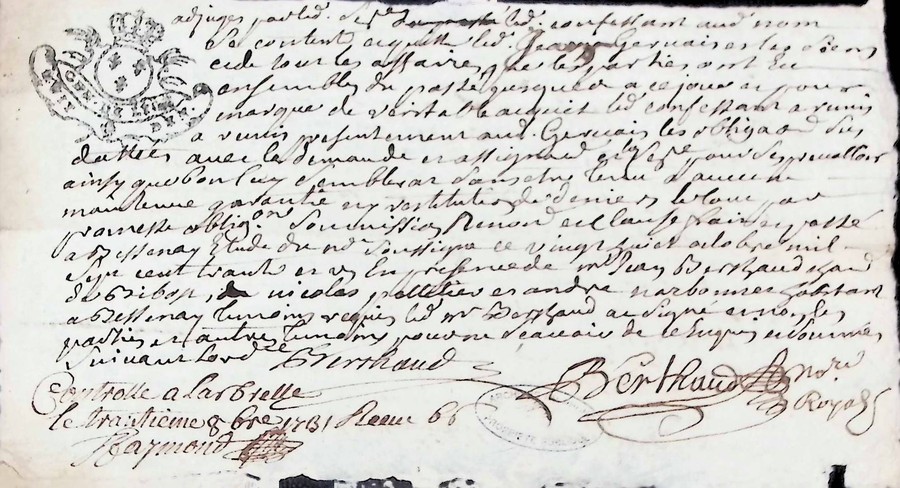 adjuges par led. led. confessant aud. nom
se contente et quitte led. Gervais et les siens
et de tout les affaires que les parties ont Eu
ensembles du passé jusques a ce jour et pour
marque de veritable acquit led confessant a remis
a remis presentement aud. Gervais les obliga.on sus
dattées avec la demande et pour sen prevalloir
ainsy que bon luy semblera sans estre tenu d'aucune
maintenue garantie ny restitution de deniers le tout par
promesse oblig.on soumission Renon.on et clause fait et passé
a Bessenay Etude du no.re soussigné ce vingt huit octobre mil
sept cent trante et un En presence de m.re Jean Berthaud
du Ribost, de nicolas pelletier et andré narbonnet habitant
a Bessenay temoins requis led m.r Berthaud a signé et non les
parties et autres temoins pour ne scavoir de ce Enquis et sommés
suivant lord.ce Berthaud
Berthaud No.re
Royal
Controlle a Larbresle
le trantieme 8bre 1731 Receu
Raymond